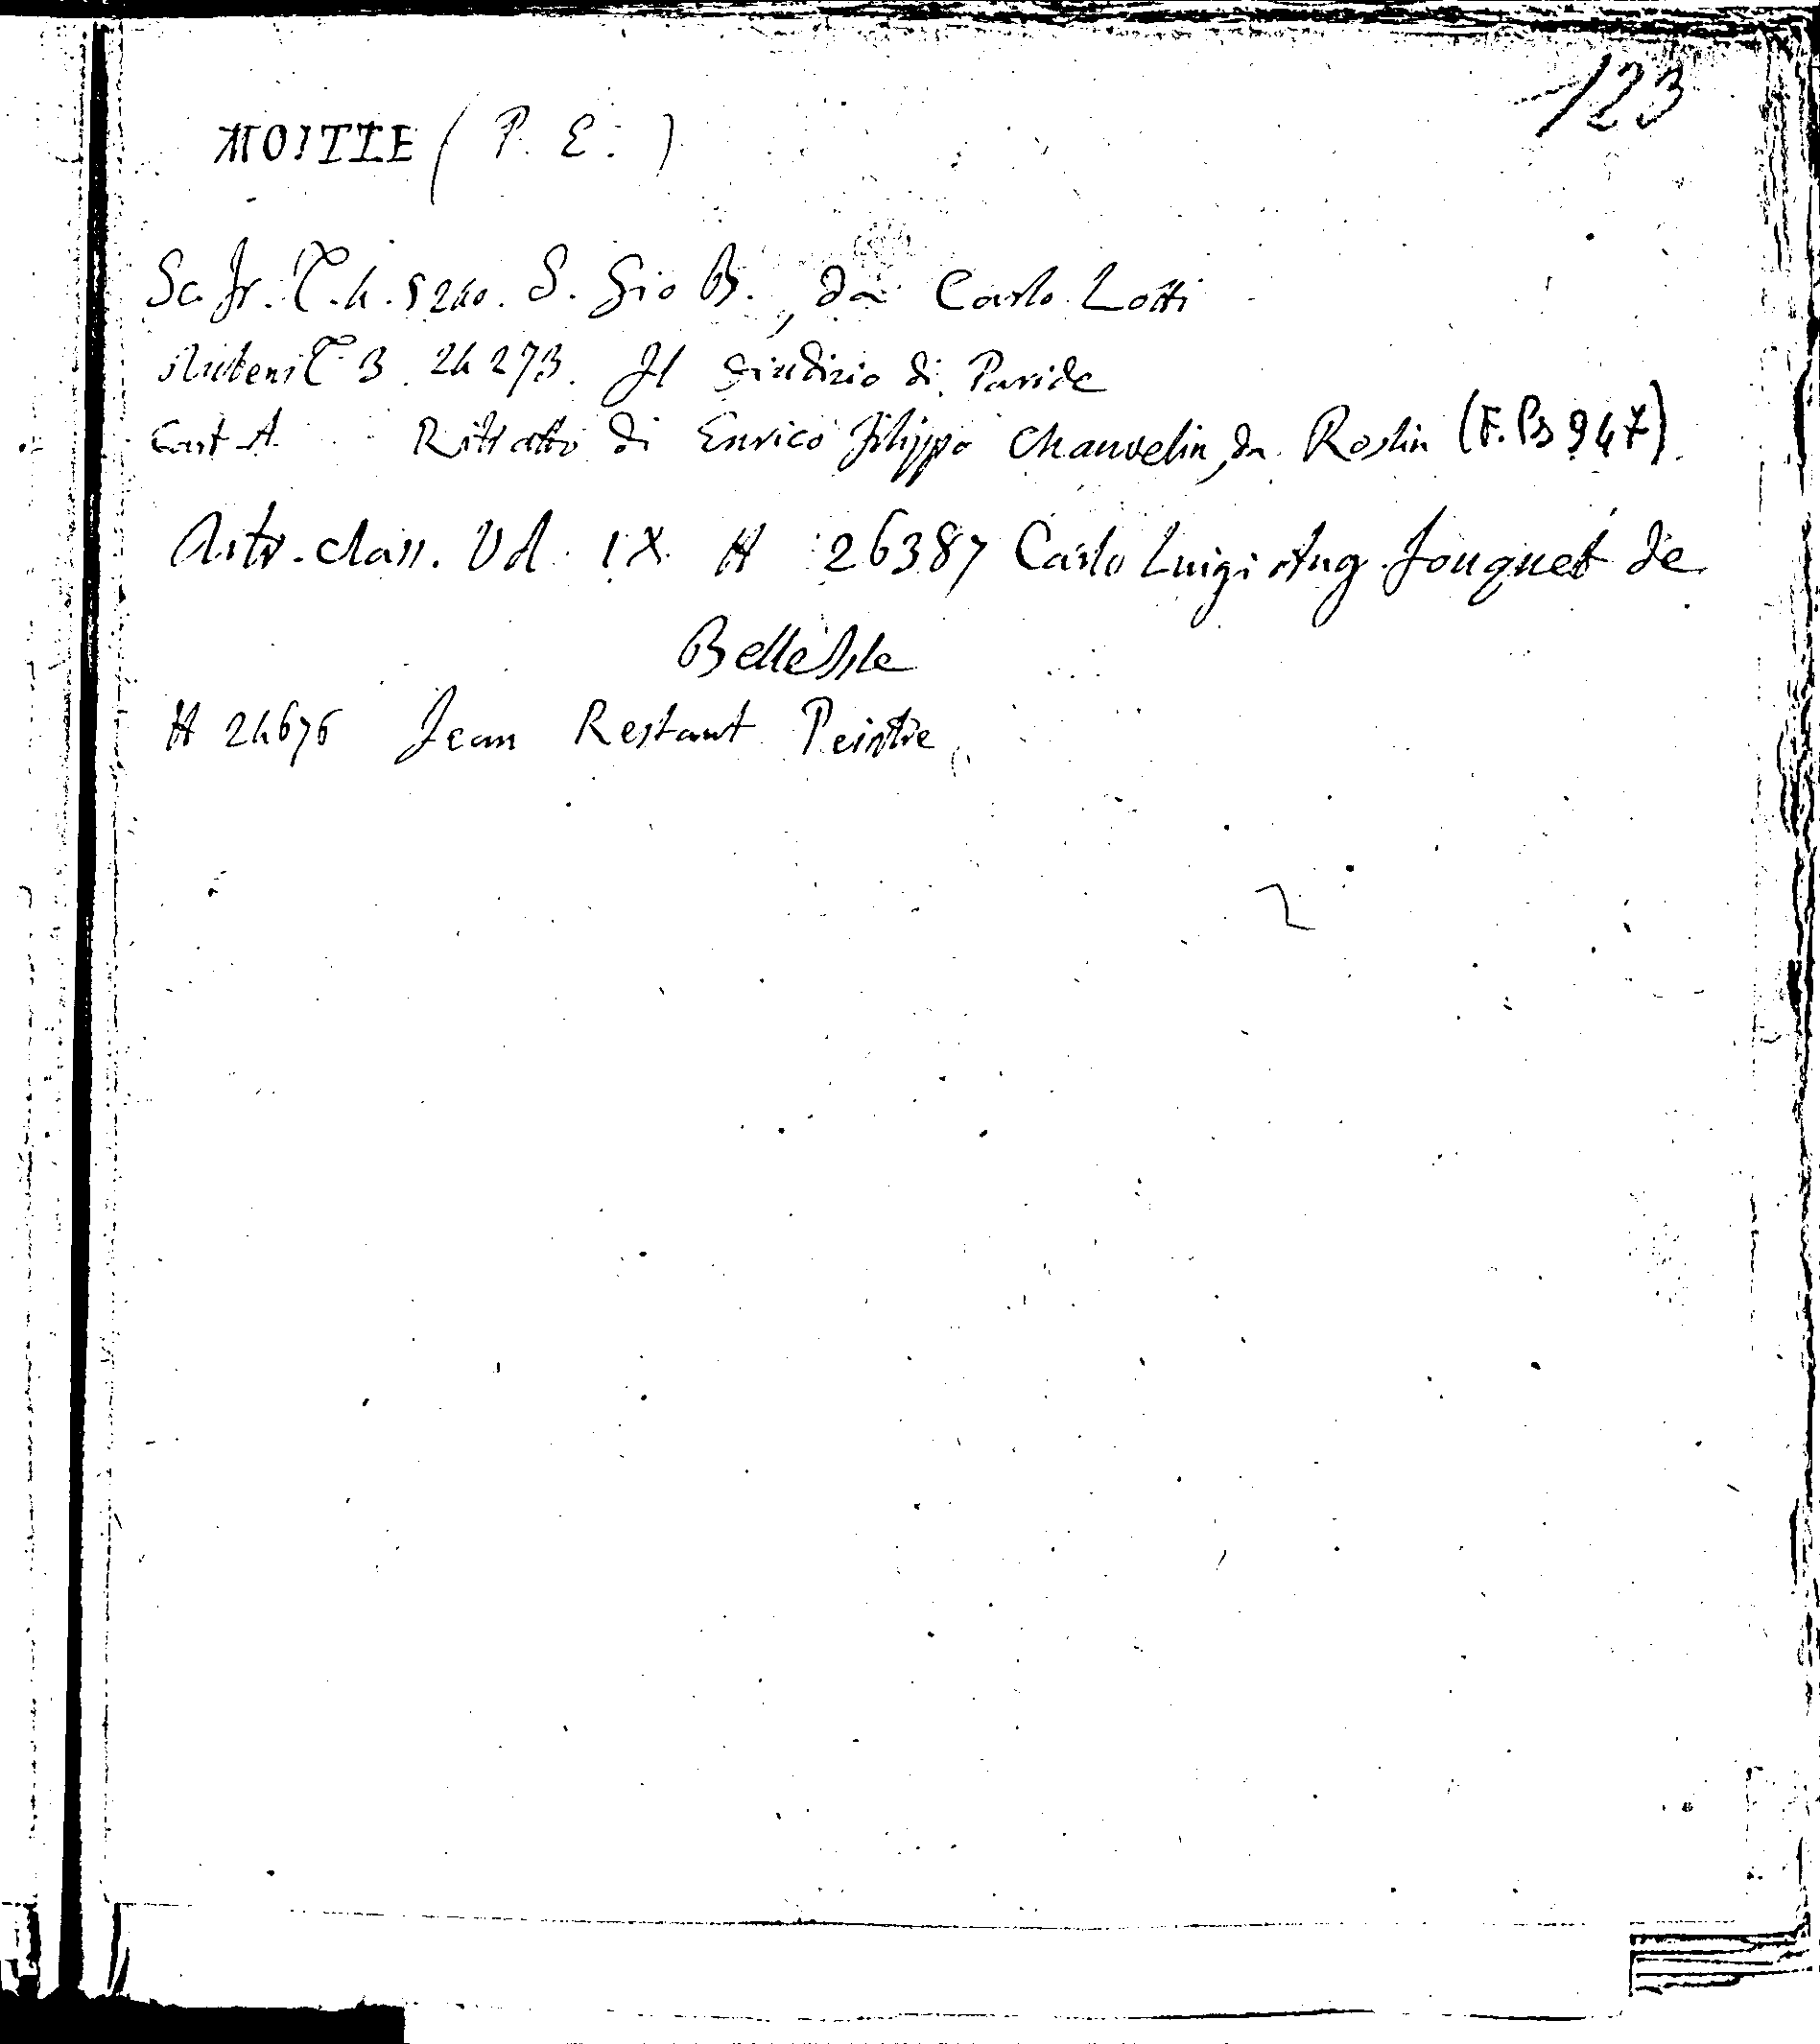 123
MOITTE (P. E.)
Sc. Fr. T. 4. 5240. S. Gio B., da Carlo Lotti
Rubens T 3. 24273. Il giudizio di Paride
Cart A. Ritratto di Enrico Filippo Chauvelin, da Roslin (F. B 947).
Astr. class. Vol. IX. H 26387 Carlo Luigi Aug. Fouquet de
Belle Isle
H 24676 Jean Restaut Peintre